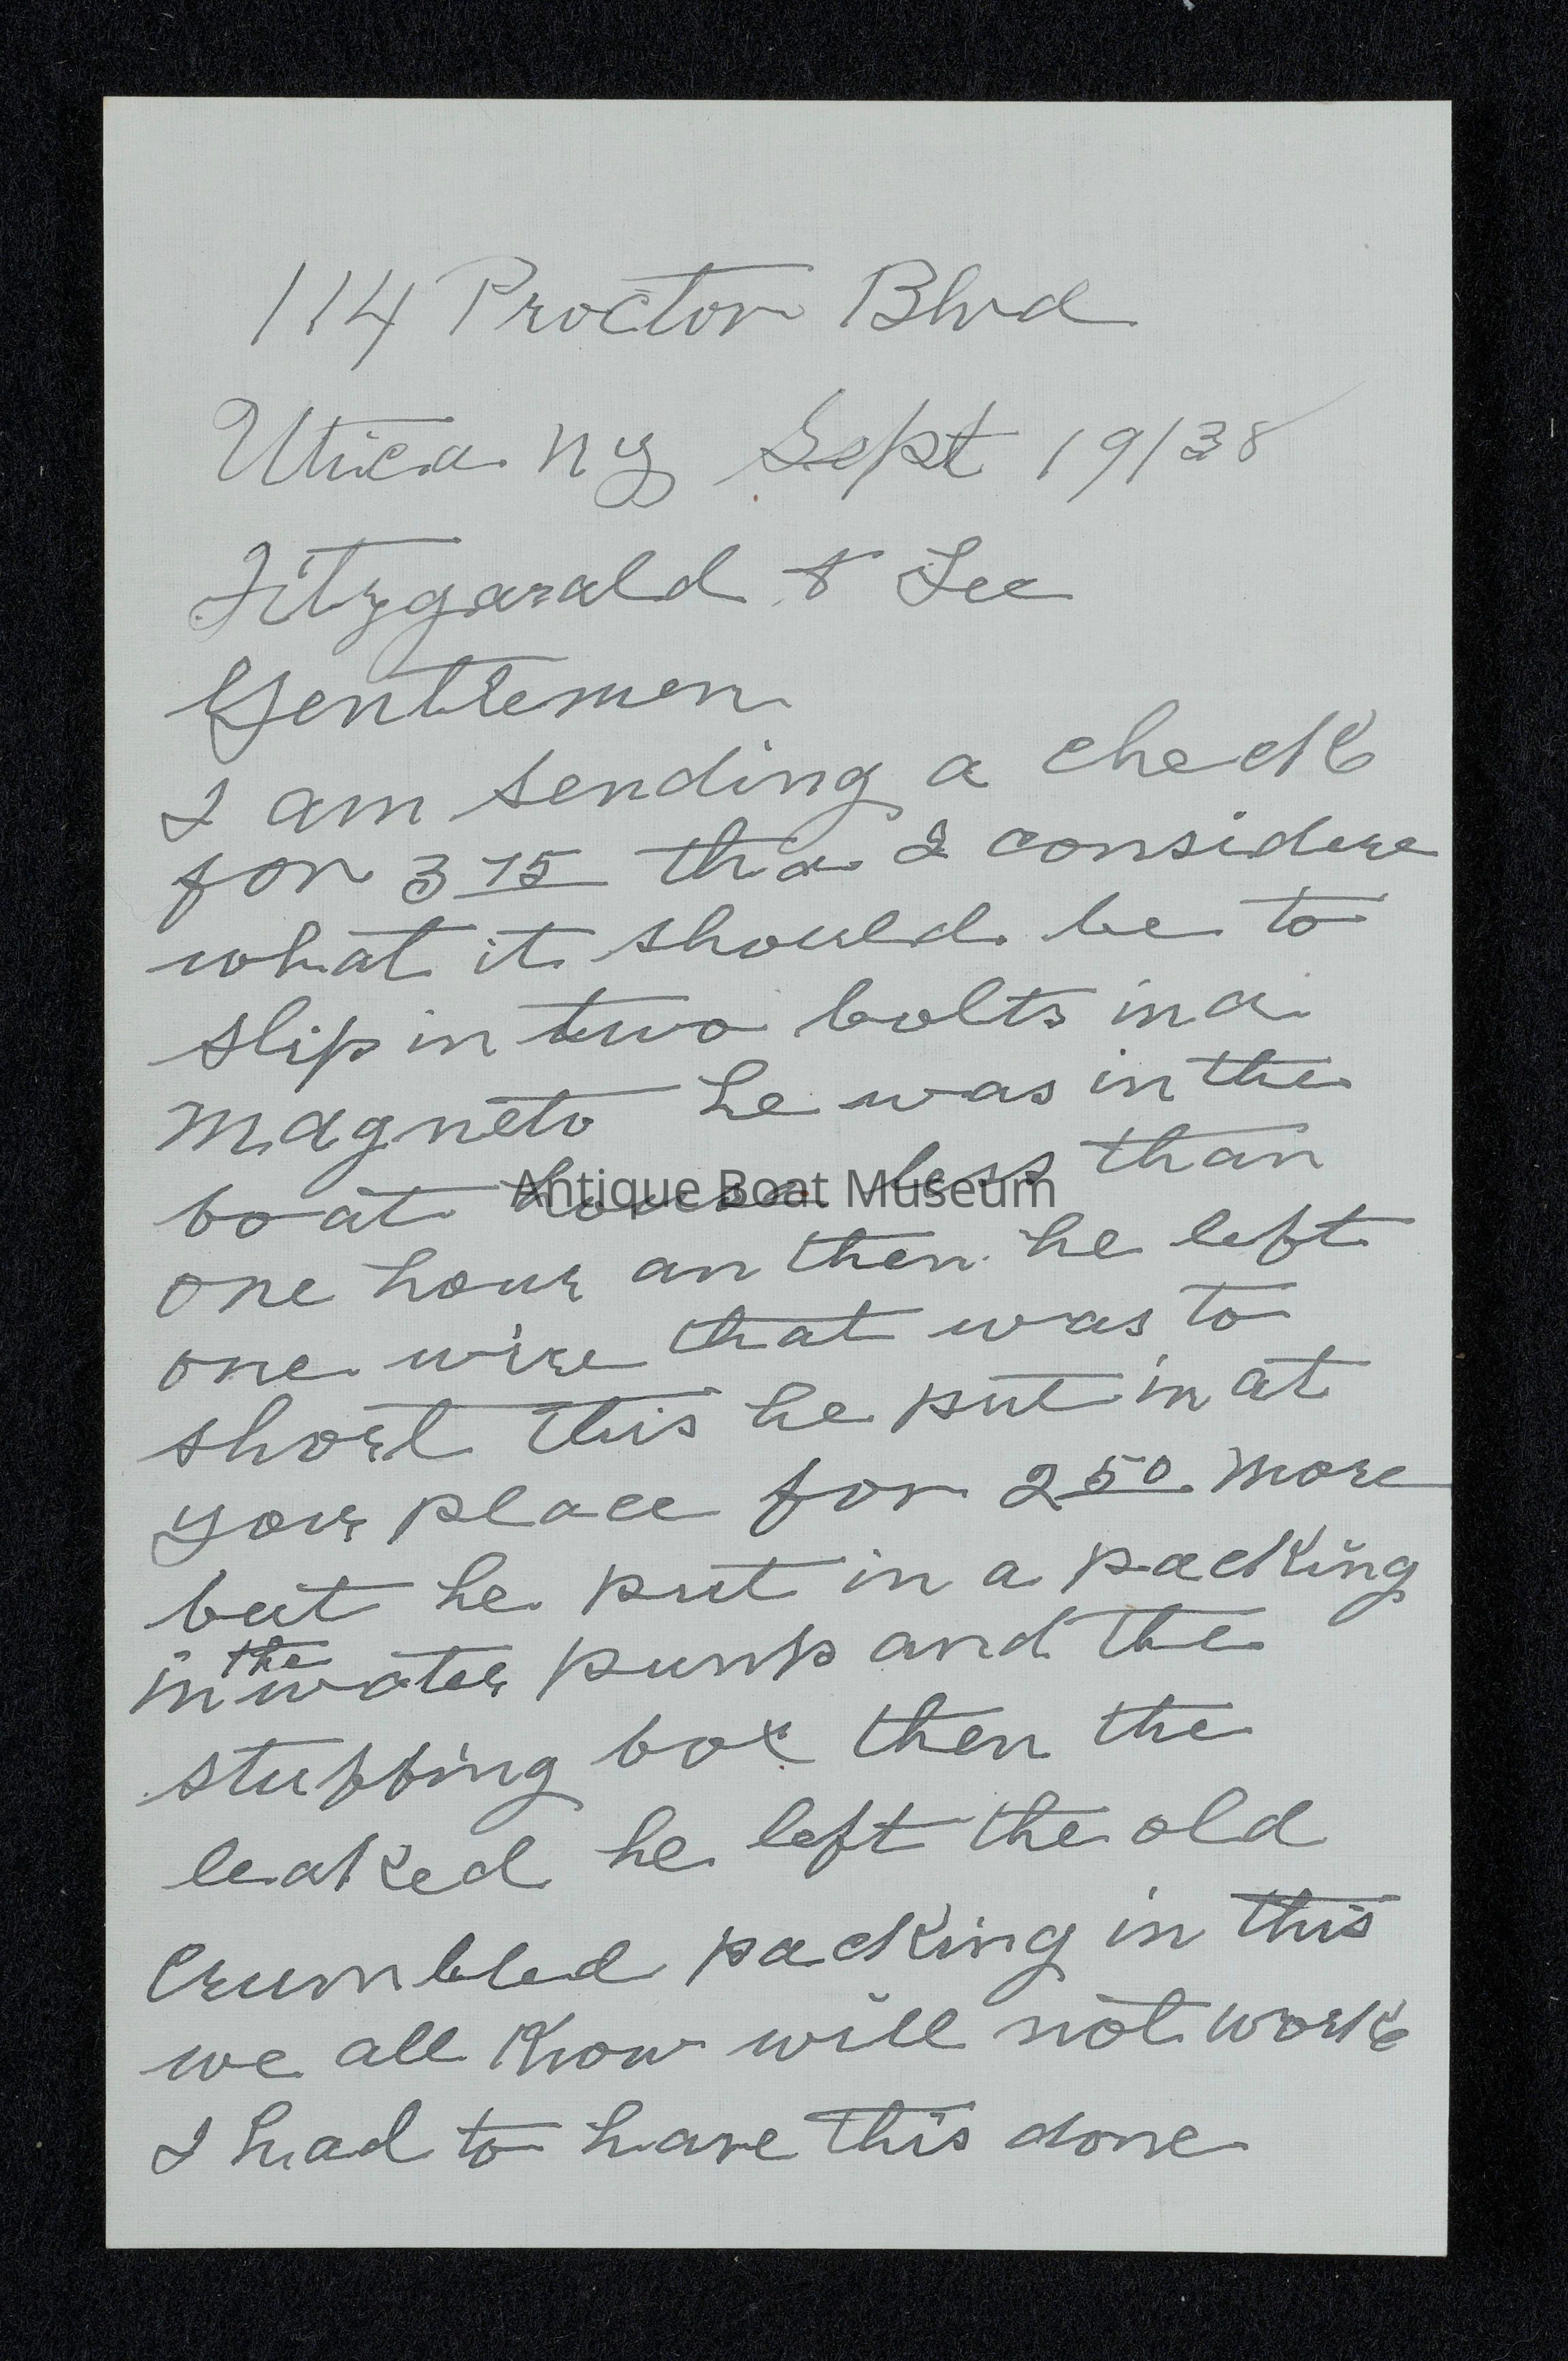 114 Proctor Blvd
Utica NY Sept 19/38
Fitzgarald & Lee
Gentlemen
I am sending a check
for 3 75 tha I considere
what it should be to
slip in two bolts in a
magneto he was in the
boat house less than
Antique Boat Museum
one hour an then he left
one wire that was to
short this he put in at
your place for 2 50 more
but he put in a packing
in the water pump and the
stuffing box then the
leaked he left the old
crumbled packing in this
we all know will not work
I had to have this done